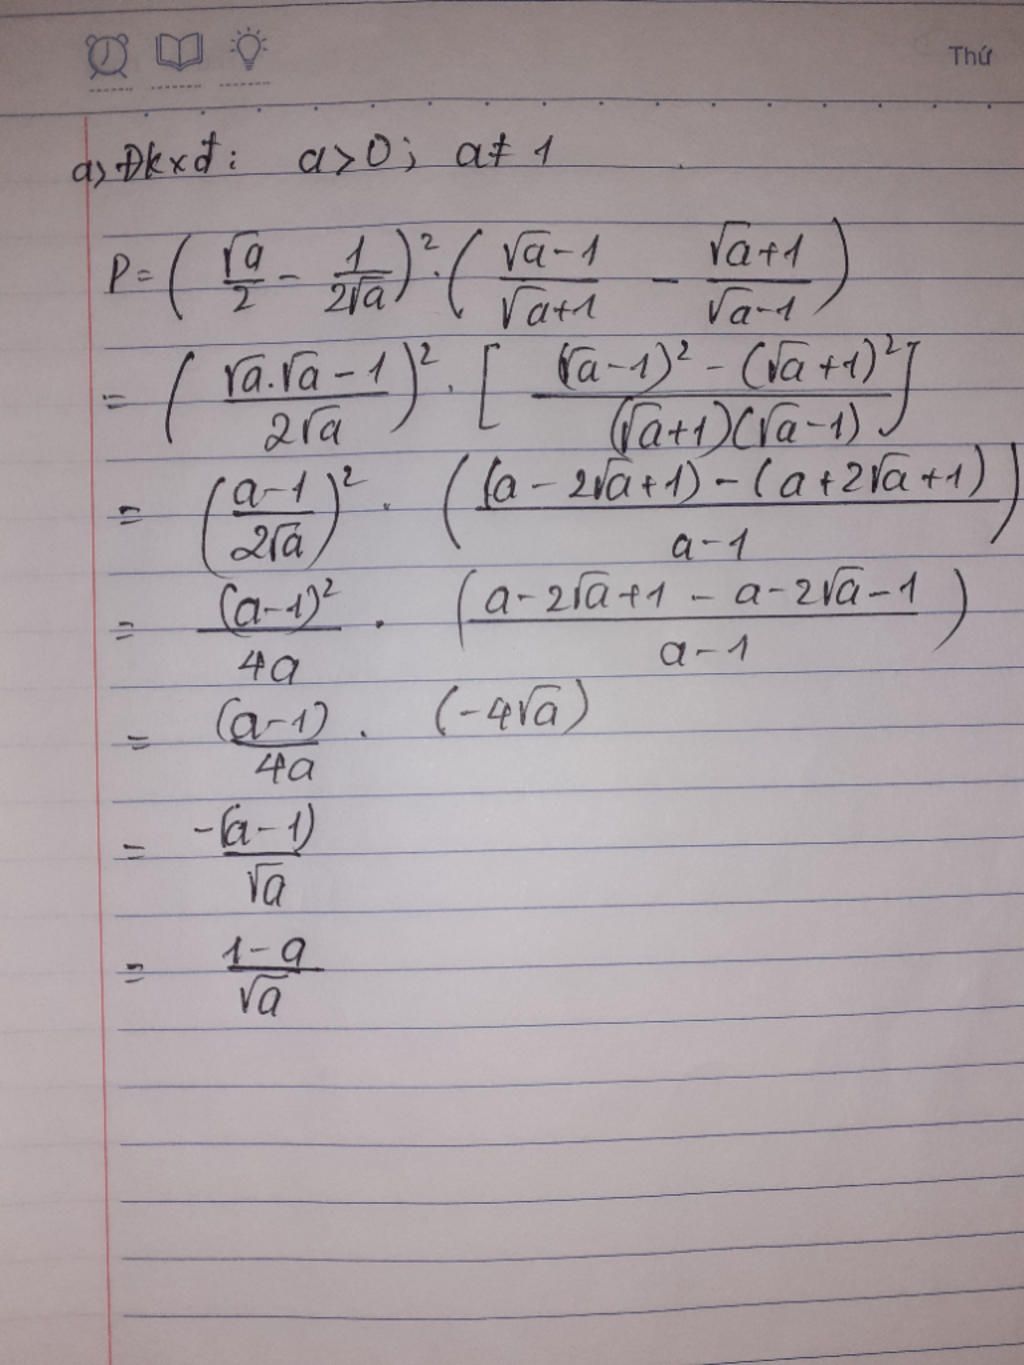 Thứ
a> Đkxđ: a>0; a≠1
P = (√a/2 - 1/2√a)² · (√a-1/√a+1 - √a+1/√a-1)
= (√a.√a-1/2√a)² · [(√a-1)² - (√a+1)²/(√a+1)(√a-1)]
= (a-1/2√a)² · ((a-2√a+1)-(a+2√a+1)/a-1)
= (a-1)²/4a · (a-2√a+1-a-2√a-1/a-1)
= (a-1)/4a · (-4√a)
= -(a-1)/√a
= 1-a/√a